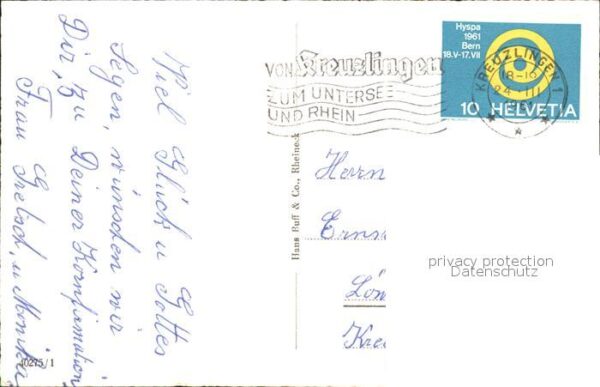 Viel Glück u Gottes
Segen, wünschen wir
Dir, zu Deiner Konfirmation
Frau u. Monika
40275/1
Hans Buff & Co., Rheineck
VON Kreuzlingen
ZUM UNTERSEE
UND RHEIN
Hyspa
1961
Bern
18.V-17.VII
10 HELVETIA
KREUZLINGEN 1
Herrn
Erns
Kre
privacy protection
Datenschutz